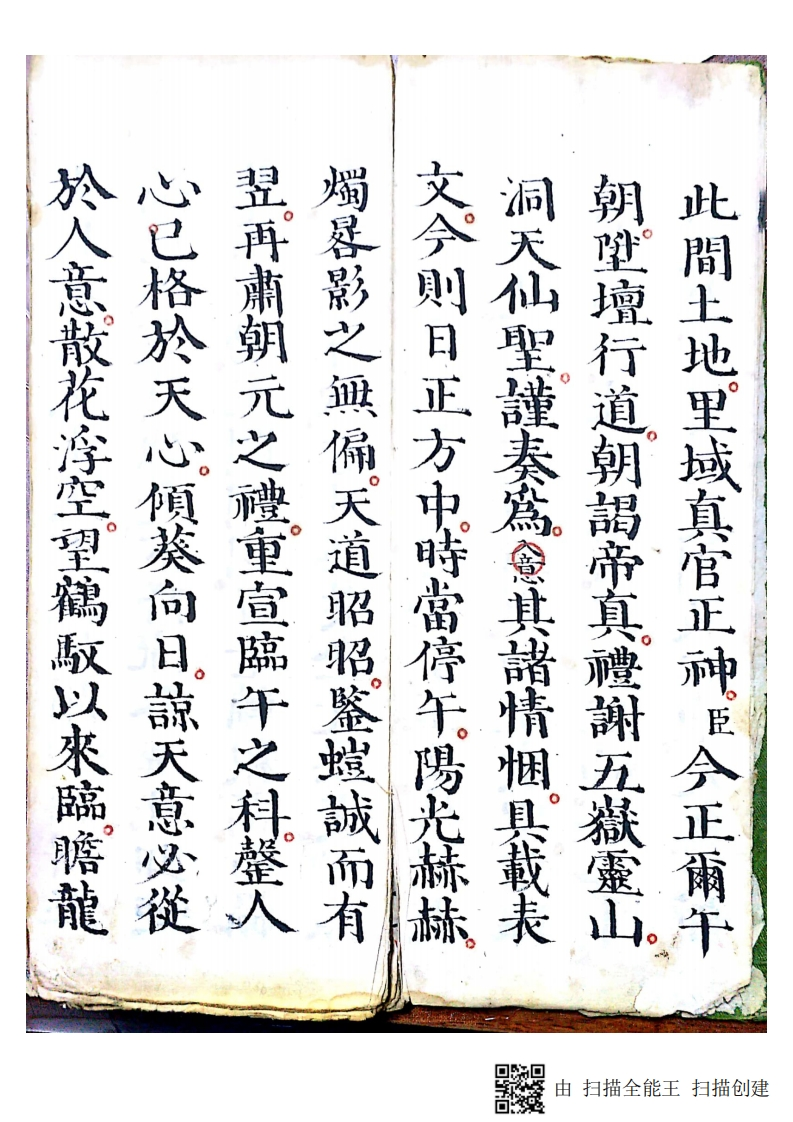 此間土地里域真官正神臣今正爾午
朝陞壇行道朝謁帝真禮謝五嶽靈山
洞天仙聖謹奏為入意具諸情悃具載表
文今則日正方中時當停午陽光赫赫
燭晷影之無偏天道昭昭鑒螘誠而有
翌再肅朝元之禮重宣臨午之科罄人
心已格於天心傾葵向日諒天意必從
於人意散花浮空望鶴馭以來臨瞻龍
由 扫描全能王 扫描创建